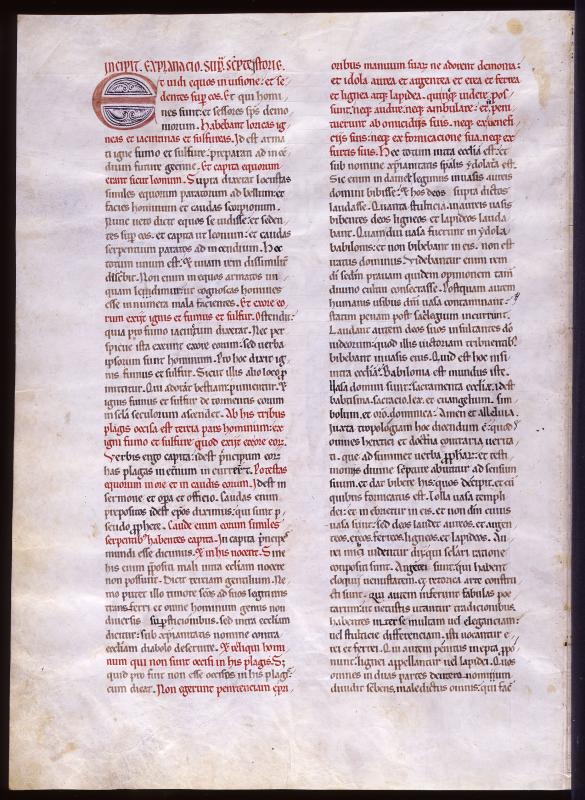 Incipit. explanacio. sup. sc̄pte istorie.
Et uidi equos in uisione: et se
dentes sup̄ eos. Et qui homi
nes sunt: et sessores sp̄s demo
niorum. Habebant loricas ig
neas et iacintinas et sulfureas. Id est arma
ti igne fumo et sulfure: preparati ad incen
dium future gecenne. Et capita equorum
erant sicut leonum. Supra dixerat locustas
similes equorum paratorum ad bellum: et
facies hominum et caudas scorpionum.
Nunc uero dicit equos se uidisse: et seden
tes sup̄ eos. et capita ut leonum: et caudas
serpentium paratos ad incendium. Hec
totum unum est. Et unam rem dissimilit̄
discr̄bit. Non enim in equos armatos un
quam leg̅dimur: ut cognoscas homines
esse in numera mala facientes. Et exore eo
rum exiit ignis et fumus et sulfur. Ostendit
quia pro fumo iacinctum dixerat. Nec per
spicue ista exeunt exore eorum: sed uerba
ipsorum sunt hominum. Pro hoc dixit ig
nis fumus et sulfur. Sicut illis alio loco p
mittitur. Qui adorat bestiam: pumentur. Et
ignis fumus et sulfur de tormentis eorum
in sc̄la seculorum ascendet. Ab his tribus
plagis occisa est terera pars hominum: ex
igni fumo et sulfure: quod exiit exore eor̄.
Verbis ergo capita: id est principum eor̄
has plagas in et̄num in current. Potestas
equorum in ore et in caudis eorum. Id est in
sermone et opa et officio. Caudas enim
prepositos id est ep̄os diximus: qui sunt p
seudo p̄phete. Caude enim eorum similes
serpentib; habentes capita. In capita princip̄e
mundi esse dicimus. Et in his nocent. Sine
his enim p̄positi mali una ecl̄iam nocere
non possunt. Dicit terciam gentilium. Ne
mo putet illo timore sc̄os ad suos legitimis
transferri et omne hominum genus non
diuersis superstitionibus. sed intra ecclīam
dicitur: sub xp̄ianitatis nomine contra
ecclīam diabolo deserunt. Et reliqui homi
num qui non sunt occisi in his plagis. S;
quid pro fuit non esse occisos in his plagis:
cum dicat. Non egerunt penitenciam exp̄ri
oribus manuum suar̄ ne adorent demonia:
et idola aurea et argentea et erea et ferrea
et lignea atq; lapidea. quinq; uidere pos
sunt. neq; audire. neq; ambulare. et peni
tuerunt ab omicidiis suis. neq; ex uenefi
ciis suis: neq; ex fornicacione sua. neq; ex
furtis suis. Hec totum intra ecclīa est: et
sub nomine xp̄ianitatis sp̄alis ydolatia est.
Sic enim in daniel legimus in uasis aureis
domini bibisse: et hos deos supra dictos
laudasse. Quanta stulticia. in aureis uasis
bibentes deos ligneos et lapideos lauda
bant. Quamdiu uasa fuerunt in ydola
babilonis: et non bibebant in eis. non est
iratus dominus. Videbantur enim rem
di sedm prauam quidem opinionem tam̄
diuino cultui consecrasse. Postquam autem
humanis usibus dn̄i uasa contaminant:
statim penam post sac̄legium incurrunt.
Laudant autem deos suos insultantes do
uideorum: quod illis uictoriam tribuentib;
bibebant in uasis eius. Quid est hoc nisi
intra ecclīa? Babilonia est mundus iste.
Uasa domini sunt: sacramenta ecclīae: id est
babtisma. sacracio. lex. et euangelium. sim
bolum. et or̄o. dominica: Amen et alleluia.
Juxta tropologiam hoc dicendum est: quod
omnes heretici et doctrina contraria uerita
ti. que ad summet uerba p̄phar̄: et testi
moniis diuine sc̄pture abutitur ad sensum
suum. et dat bibere his: quos decipit. et cū
quibus fornicatus est. Tolla uasa templi
dei: et in ebrietur in eis. et non dm̄ cuius
uasa sunt: sed deos laudet aureos. et argen
teos. ereos. ferreos. ligneos. et lapideos. Au
rei mihi uidentur dii: qui selari ratione
compositi sunt. Argentei sunt: qui habent
eloquii uenustatem. et retorica arte constru
cti sunt. Qui autem inserunt fabulas poe
tarum: ut uetustis utantur tradicionibus.
habentes inter se multam uel eleganciam:
uel stulticie differenciam. isti uocantur e
rei et ferrei. Qui autem penitus inepta. p̄po
nunt: lignei appellantur uel lapidei. Quos
omnes in duas partes deutero nomium
diuidit sc̄bens. maledictus omnis: qui fac̄